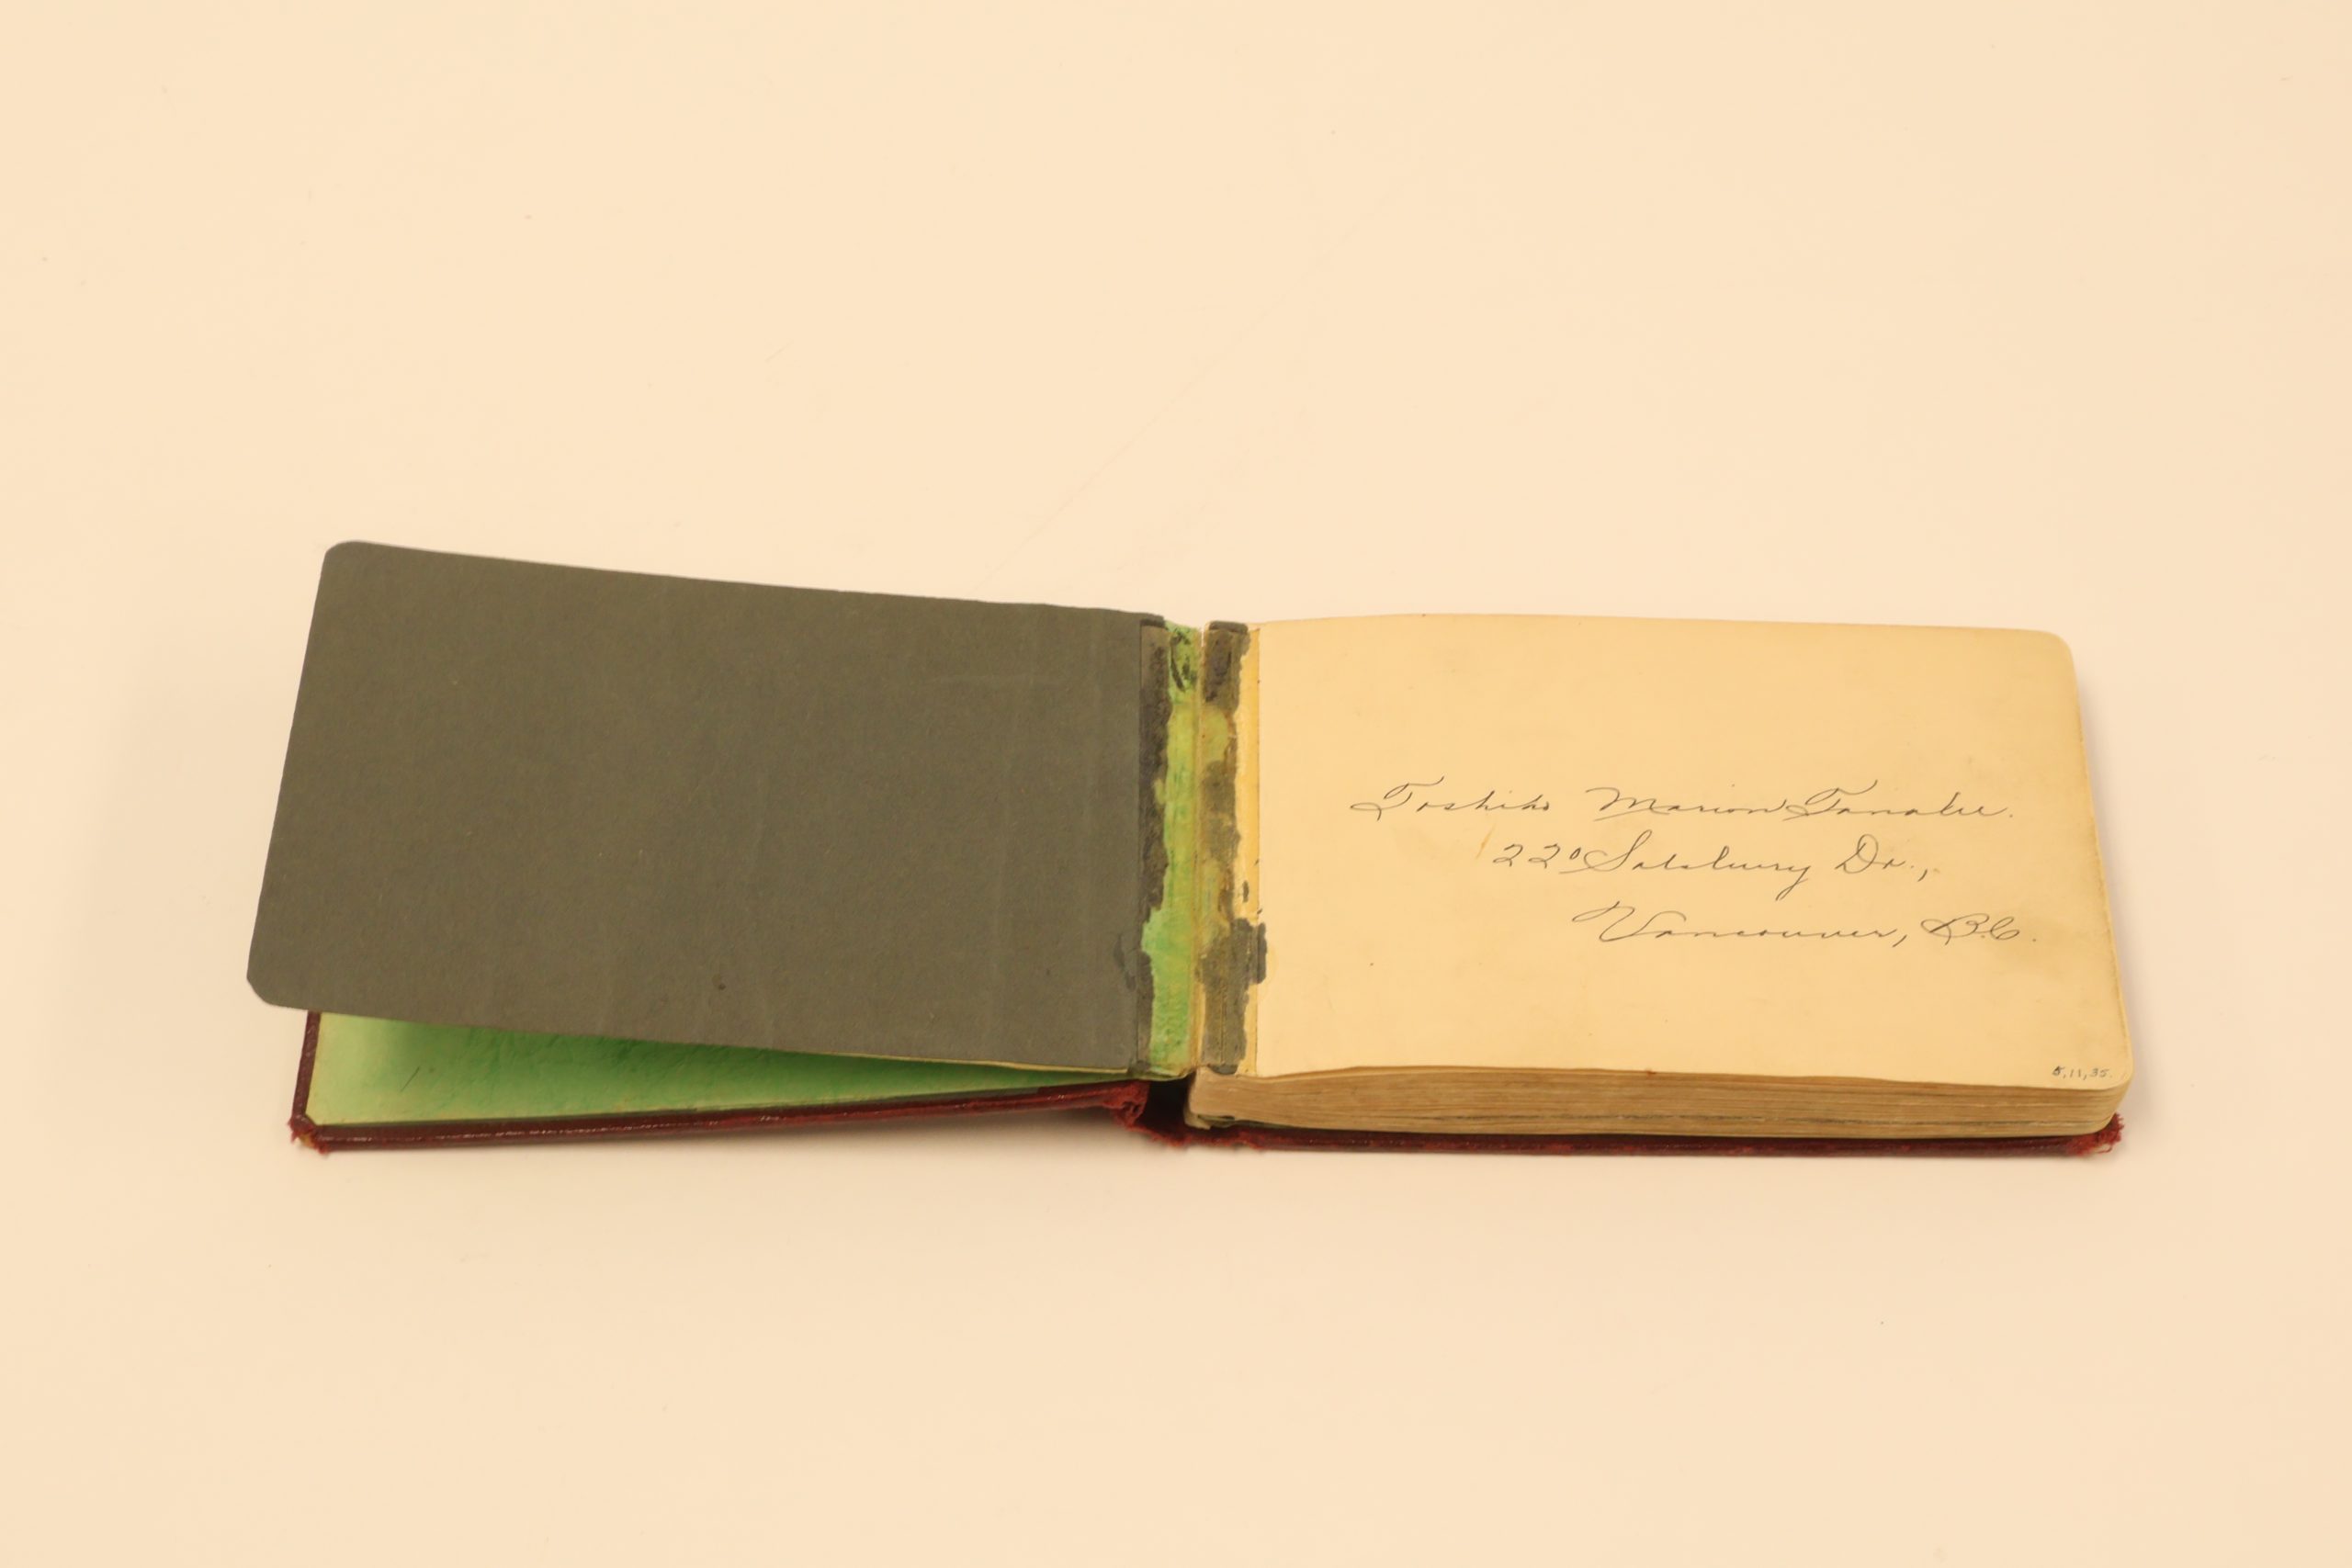 Toshiko Marion Tanaka.
220 Salsbury Dr.,
Vancouver, B.C.
5,11,35.